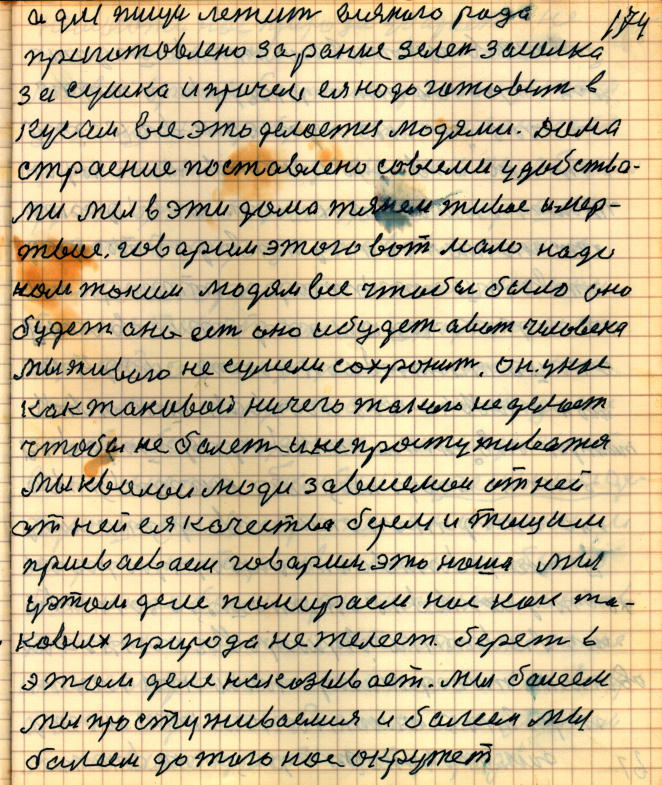 174
а для пищи летит всякого рода
приготовлено зарание зелен засолка
за сушка и прочем ея надо готовит в
кусам все это делается людями. Дома
страение поставлено совсеми удобства-
ми мы в эти дома тянем живое и мер-
твые. говарим этого вот мало надо
ком таким людям все чтобы было оно
будет оно ест оно и будет а вот человека
мы живого не сумели сохронит. он у нас
как таковой ничего такого не делает
чтобы не болет и не простуживатся
мы кволои люди зависемои от ней
от ней ея качества берем и тащим
присваеваем говарим это наша мы
уэтом деле помираем нас как та-
ковых природа не желеет. берет в
этом деле наказывает. мы болеем
мы простуживаемся и болеем мы
болеем до того нас окружет